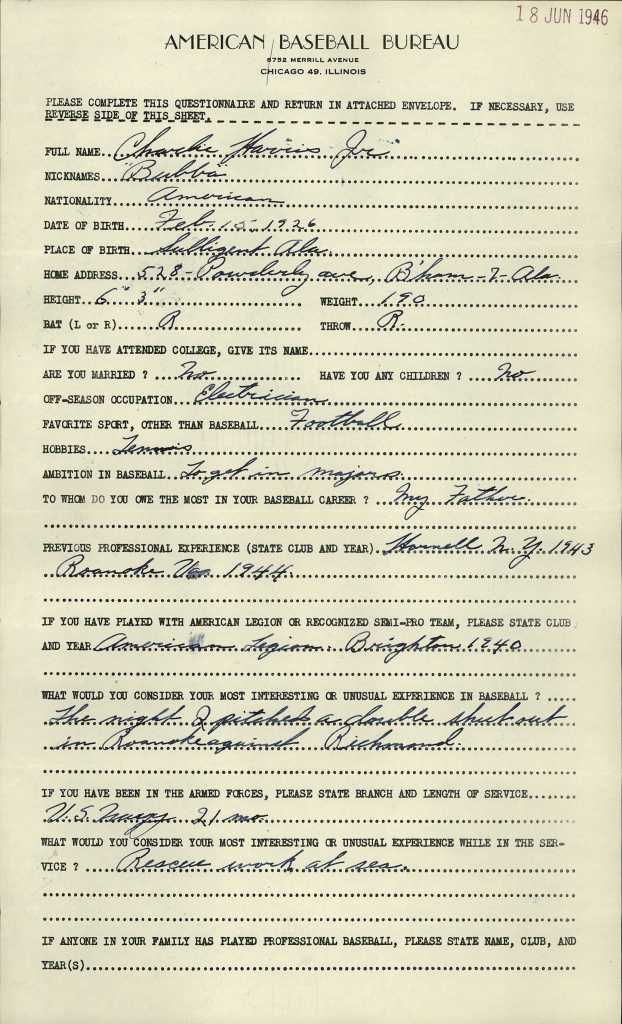 18 JUN 1946
AMERICAN BASEBALL BUREAU
6752 MERRILL AVENUE
CHICAGO 49, ILLINOIS
PLEASE COMPLETE THIS QUESTIONNAIRE AND RETURN IN ATTACHED ENVELOPE. IF NECESSARY, USE
REVERSE SIDE OF THIS SHEET.
FULL NAME Charlie Harris Jr.
NICKNAMES "Bubba"
NATIONALITY American
DATE OF BIRTH Feb. 15, 1926
PLACE OF BIRTH Sulligent Ala.
HOME ADDRESS 528 - Powderly ave, B'ham - 7 - Ala.
HEIGHT 6" 3" WEIGHT 190
BAT (L or R) R THROW R.
IF YOU HAVE ATTENDED COLLEGE, GIVE ITS NAME
ARE YOU MARRIED ? No HAVE YOU ANY CHILDREN ? No
OFF-SEASON OCCUPATION Electrician
FAVORITE SPORT, OTHER THAN BASEBALL Football
HOBBIES Tennis
AMBITION IN BASEBALL To get in majors.
TO WHOM DO YOU OWE THE MOST IN YOUR BASEBALL CAREER ? My Father.
PREVIOUS PROFESSIONAL EXPERIENCE (STATE CLUB AND YEAR) Hornell N.Y. 1943
Roanoke Va. 1944
IF YOU HAVE PLAYED WITH AMERICAN LEGION OR RECOGNIZED SEMI-PRO TEAM, PLEASE STATE CLUB
AND YEAR American Legion. Brighton 1940
WHAT WOULD YOU CONSIDER YOUR MOST INTERESTING OR UNUSUAL EXPERIENCE IN BASEBALL ?
The night I pitched a double shut out
in Roanoke against Richmond.
IF YOU HAVE BEEN IN THE ARMED FORCES, PLEASE STATE BRANCH AND LENGTH OF SERVICE
U.S. Navy 21 mo.
WHAT WOULD YOU CONSIDER YOUR MOST INTERESTING OR UNUSUAL EXPERIENCE WHILE IN THE SER-
VICE ? Rescue work at sea.
IF ANYONE IN YOUR FAMILY HAS PLAYED PROFESSIONAL BASEBALL, PLEASE STATE NAME, CLUB, AND
YEAR(S)